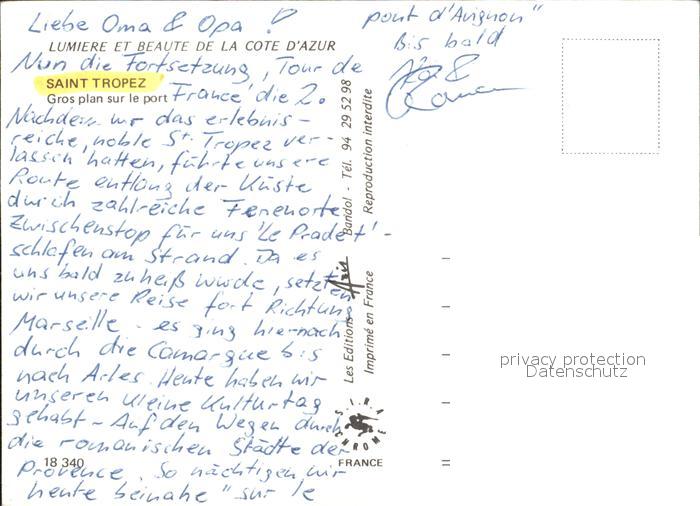 Liebe Oma & Opa !
LUMIERE ET BEAUTE DE LA COTE D'AZUR
Nun die Fortsetzung, Tour de
SAINT TROPEZ
Gros plan sur le port
France, die 2.
Nachdem wir das erlebnis-
reiche, noble St. Tropez ver-
lassen hatten, führte unsere
Route entlang der Küste
durch zahlreiche Ferienorte
Zwischenstop für uns 'Le Pradet' -
schlafen am Strand. Da es
uns bald zu heiß wurde, setzten
wir unsere Reise fort Richtung
Marseille - es ging hiernach
durch die Camargue bis
nach Arles. Heute haben wir
unseren kleine Kulturtag
gehabt - Auf den Wegen durch
die romanischen Städte der
Provence. So nächtigen wir
heute beinahe "sur le
pont d'Avignon"
Bis bald
&
18 340
Les Editions Aris Bandol - Tél. 94 29 52 98
Imprimé en France Reproduction interdite
SIRA CHROME
FRANCE
privacy protection
Datenschutz